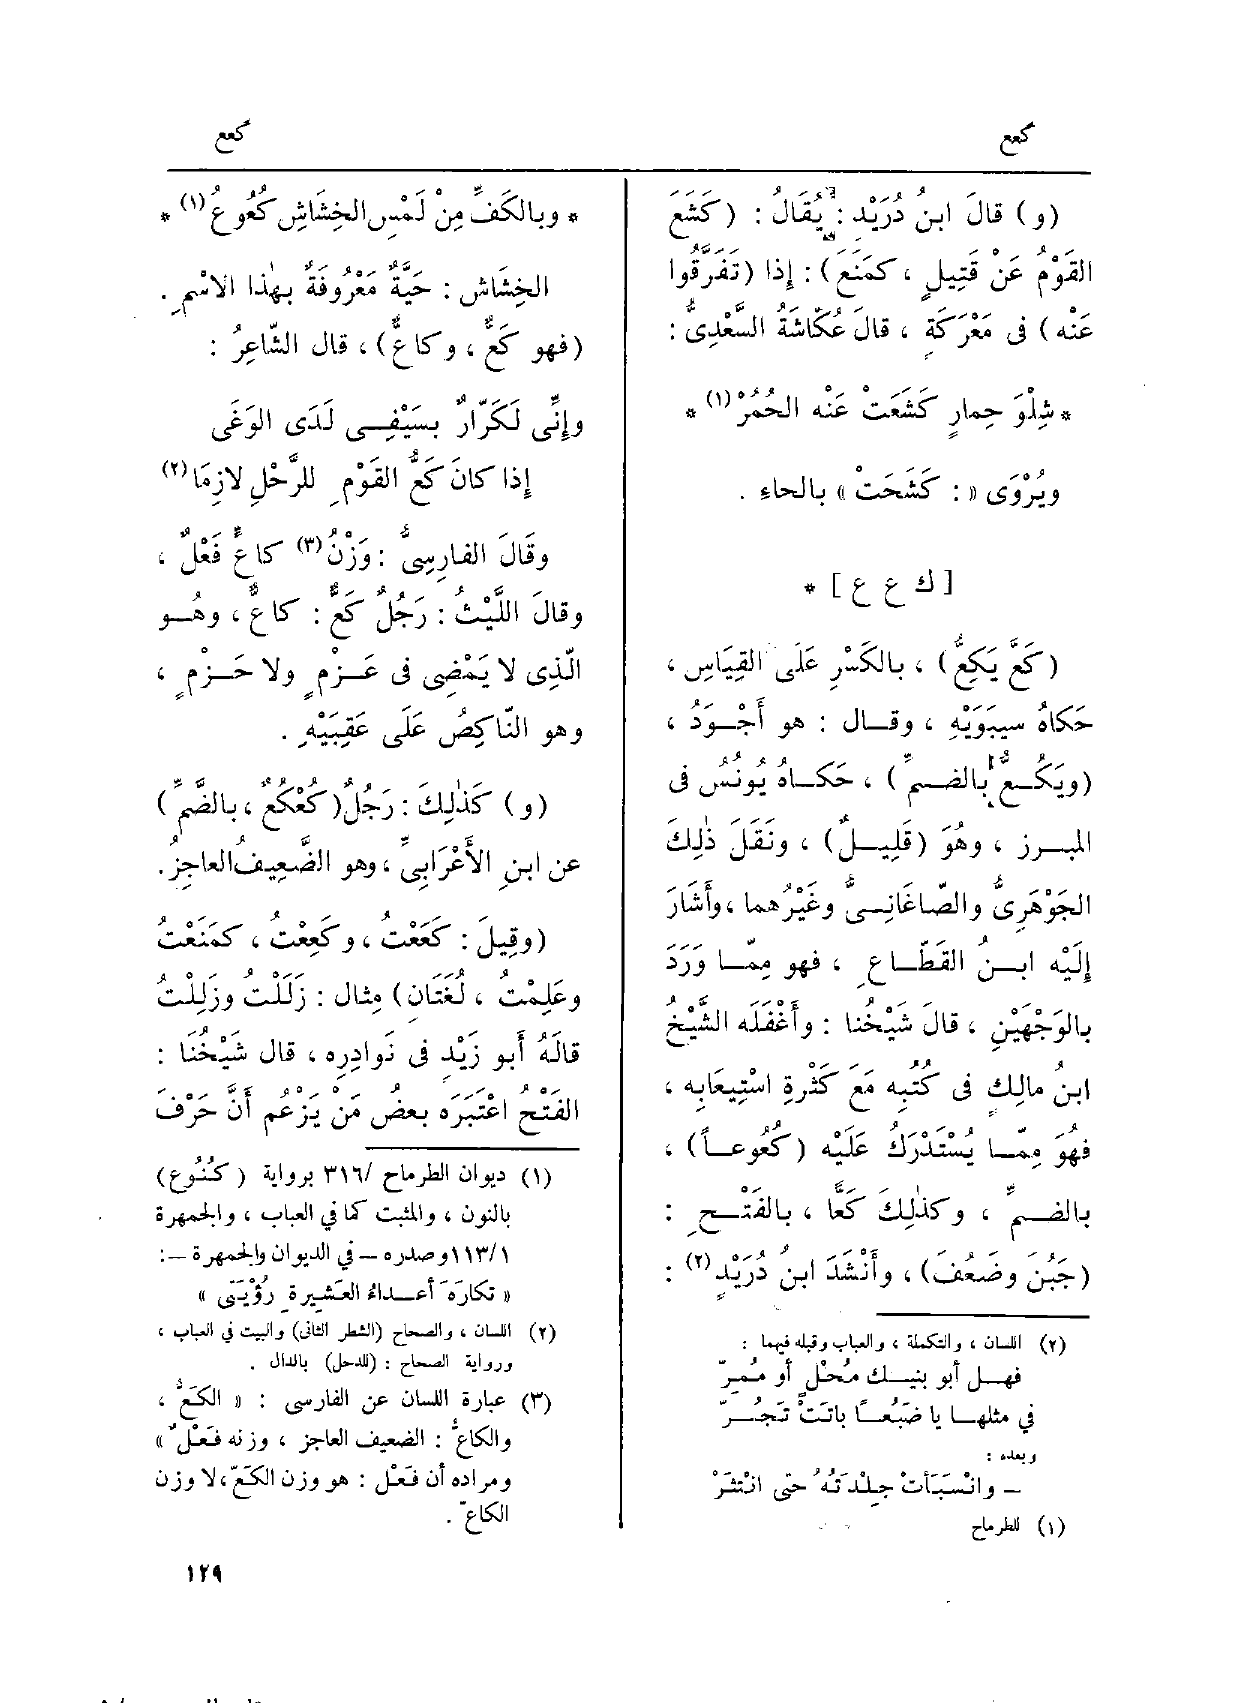 كعع
كعع
(و) قالَ ابنُ دُرَيْدٍ : يُقَالُ : (كَشَعَ
القَوْمُ عَنْ قَتِيلٍ ، كمَنَعَ) : إِذا (تَفَرَّقُوا
عَنْه) فى مَعْرَكَةٍ ، قالَ عُكّاشَةُ السَّعْدِىُّ :
* شِلْوَ حِمارٍ كَشَعَتْ عَنْه الحُمُرْ (١) *
ويُرْوَى « : كَشَحَتْ » بالحاءِ .
[ ك ع ع ] *
(كَعَّ يَكِعُّ) ، بالكَسْرِ عَلَى القِيَاسِ ،
حَكاهُ سِيبَوَيْهِ ، وقــال : هو أَجْـوَدُ ،
(ويَكُـعُّ بالضـمِّ) ، حَكــاهُ يُونُسُ فى
المبــرز ، وهُوَ (قَلِيــلٌ) ، ونَقَلَ ذٰلِكَ
الجَوْهَرِىُّ والصّاغَانِــىُّ وغَيْرُهما ، وأَشَارَ
إِلَيْه ابــنُ القَطّــاعِ ، فهو مِمّــا وَرَدَ
بالوَجْهَيْنِ ، قالَ شَيْخُنا : وأَغْفَلَه الشَّيْخُ
ابنُ مالِكٍ فى كُتُبِه مَعَ كَثْرَةِ اسْتِيعَابِه ،
فهُوَ مِمّــا يُسْتَدْرَكُ عَلَيْه (كُعُوعــاً) ،
بالضــمِّ ، وكذٰلِكَ كَعًّا ، بالفَتْــحِ :
(جَبُنَ وضَعُفَ) ، وأَنْشَدَ ابنُ دُرَيْدٍ (٢) :
(٢) اللسان ، والتكملة ، والعباب وقبله فيهما :
فهــل أبو بنيــك مُحْلٍ أو مُمِرّ
في مثلهــا يا ضَبُعــًا باتَتْ تَجُــرّ
وبعده :
– وانْسَبَأتْ جِلْدَتهُ حتى انْتشَرْ
(١) للطرماح
* وبالكَفِّ مِنْ لَمْسِ الخِشَاشِ كُعُوعُ (١) *
الخِشَاش : حَيَّةٌ مَعْرُوفَةٌ بهٰذا الاسْمِ .
(فهو كَعٌّ ، وكاعٌّ) ، قال الشّاعِرُ :
وإِنِّى لَكَرّارٌ بسَيْفِــى لَدَى الوَغَى
إِذا كانَ كَعُّ القَوْمِ للرَّحْلِ لازِمَا (٢)
وقَالَ الفارِسِىُّ : وَزْنُ (٣) كاعٍّ فَعْلٌ ،
وقالَ اللَّيْثُ : رَجُلٌ كَعٌّ : كاعٌّ ، وهُــو
الَّذِى لا يَمْضِى فى عَــزْمٍ ولا حَــزْمٍ ،
وهو النّاكِصُ عَلَى عَقِبَيْهِ .
(و) كَذٰلِكَ : رَجُلٌ (كُعْكُعٌ ، بالضَّمِّ)
عن ابنِ الأَعْرَابِىِّ ، وهو الضَّعِيفُ العاجِزُ.
(وقِيلَ : كَعَعْتُ ، وكَعِعْتُ ، كمَنَعْتُ
وعَلِمْتُ ، لُغَتَانِ) مِثال : زَلَلْتُ وزَلِلْتُ
قالَهُ أَبو زَيْدٍ فى نَوادِرِه ، قال شَيْخُنَا :
الفَتْحُ اعْتَبَرَه بعضُ مَنْ يَزْعُم أَنَّ حَرْفَ
(١) ديوان الطرماح /٣١٦ برواية (كُنُوع)
بالنون ، والمثبت كما في العباب ، والجمهرة
١١٣/١ وصدره – في الديوان والجمهرة – :
« تكارَهَ أعــداءُ العَشيرةِ رُؤْيَتى »
(٢) اللسان ، والصحاح (الشطر الثانى) والبيت في العباب ،
ورواية الصحاح : (للدحل) بالدال .
(٣) عبارة اللسان عن الفارسى : « الكَعُّ ،
والكاعُّ : الضعيف العاجز ، وزنه فَعْلٌ »
ومراده أن فَعْل : هو وزن الكَعّ ، لا وزن
الكاعّ .
١٢٩